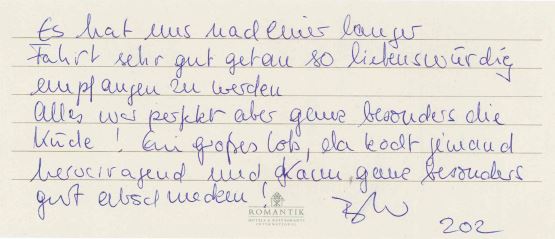 Es hat uns nach einer langer
Fahrt sehr gut getan so liebenswürdig
empfangen zu werden
Alles war perfekt aber ganz besonders die
Küche! Ein großes Lob, da kocht jemand
hervorragend und kann ganz besonders
gut abschmecken!
ROMANTIK
HOTELS & RESTAURANTS
INTERNATIONAL
202